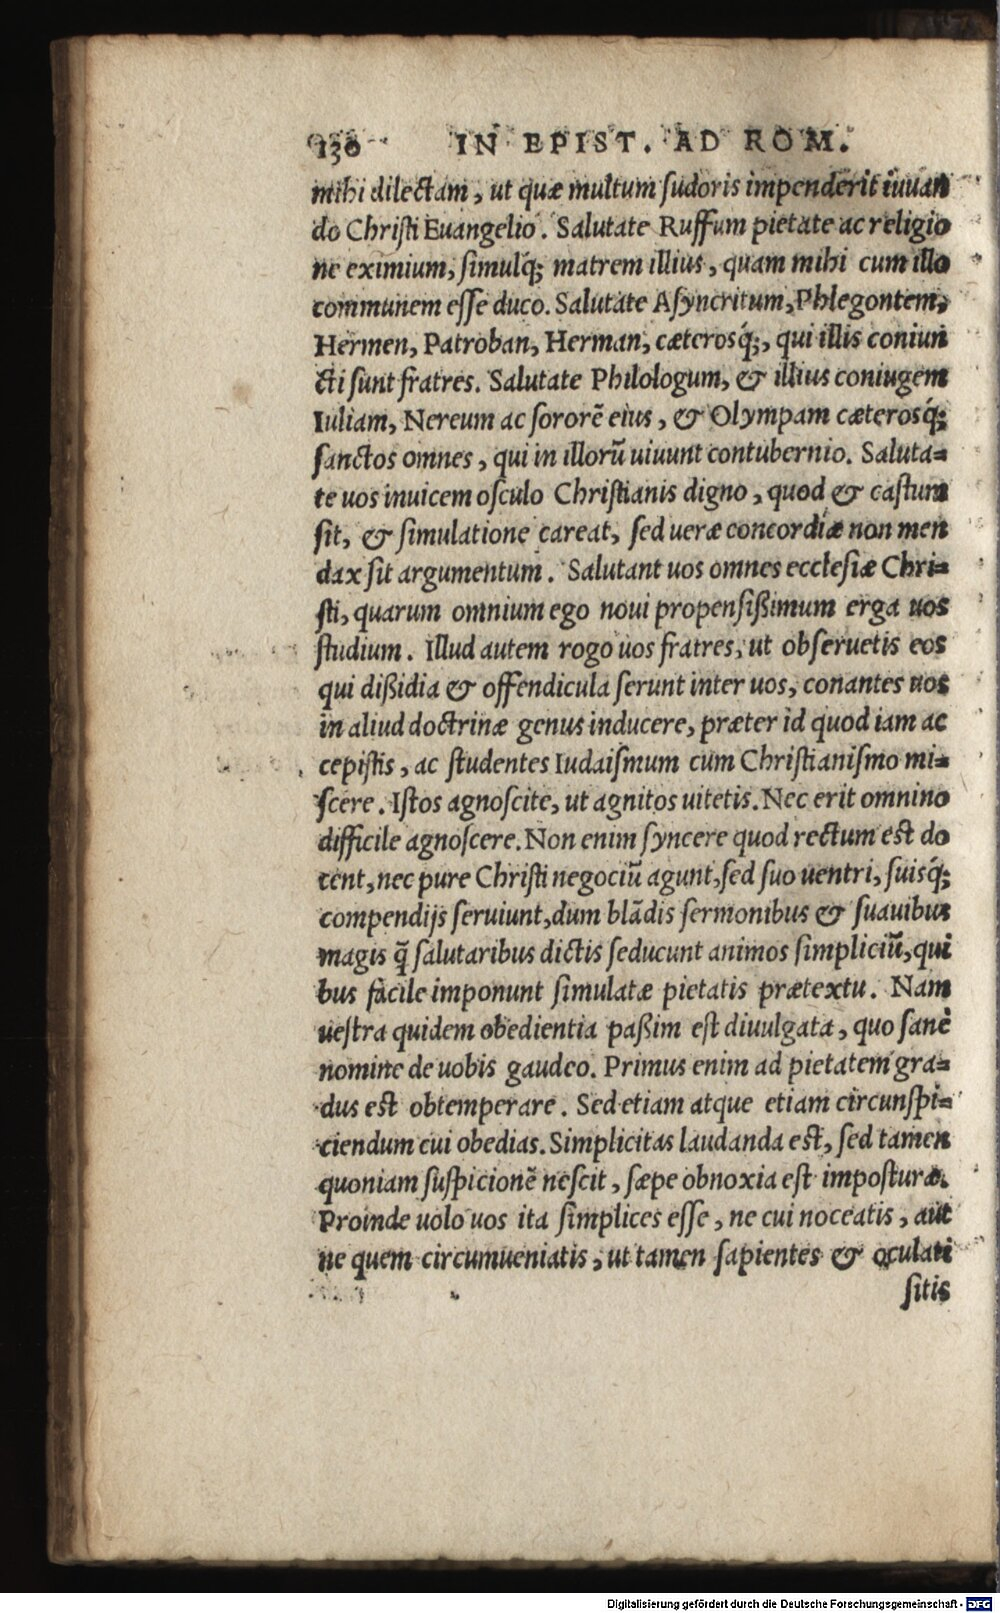 130 IN EPIST. AD ROM.
mihi dilectam, ut quæ multum ſudoris impenderit iuuan
do Chriſti Euangelio. Salutate Ruffum pietate ac religio
ne eximium, ſimulq́; matrem illius, quam mihi cum illo
communem eſſe duco. Salutate Aſyncritum, Phlegontem,
Hermen, Patroban, Herman, cæterosq́;, qui illis coniun
cti ſunt fratres. Salutate Philologum, & illius coniugem
Iuliam, Nereum ac ſororẽ eius, & Olympam cæterosq́;
ſanctos omnes, qui in illorũ uiuunt contubernio. Saluta=
te uos inuicem oſculo Chriſtianis digno, quod & caſtum
ſit, & ſimulatione careat, ſed ueræ concordiæ non men
dax ſit argumentum. Salutant uos omnes eccleſiæ Chri=
ſti, quarum omnium ego noui propenſißimum erga uos
ſtudium. Illud autem rogo uos fratres, ut obſeruetis eos
qui dißidia & offendicula ſerunt inter uos, conantes uos
in aliud doctrinæ genus inducere, præter id quod iam ac
cepiſtis, ac ſtudentes Iudaiſmum cum Chriſtianiſmo mi=
ſcere. Iſtos agnoſcite, ut agnitos uitetis. Nec erit omnino
difficile agnoſcere. Non enim ſyncere quod rectum eſt do
cent, nec pure Chriſti negociũ agunt, ſed ſuo uentri, ſuisq́;
compendijs ſeruiunt, dum blãdis ſermonibus & ſuauibus
magis q̃ ſalutaribus dictis ſeducunt animos ſimpliciũ, qui
bus facile imponunt ſimulatæ pietatis prætextu. Nam
ueſtra quidem obedientia paßim eſt diuulgata, quo ſanè
nomine de uobis gaudeo. Primus enim ad pietatem gra=
dus eſt obtemperare. Sed etiam atque etiam circunſpi=
ciendum cui obedias. Simplicitas laudanda eſt, ſed tamen
quoniam ſuſpicionẽ neſcit, ſæpe obnoxia eſt impoſturæ.
Proinde uolo uos ita ſimplices eſſe, ne cui noceatis, aut
ne quem circumueniatis, ut tamen ſapientes & oculati
ſitis
Digitalisierung gefördert durch die Deutsche Forschungsgemeinschaft - DFG